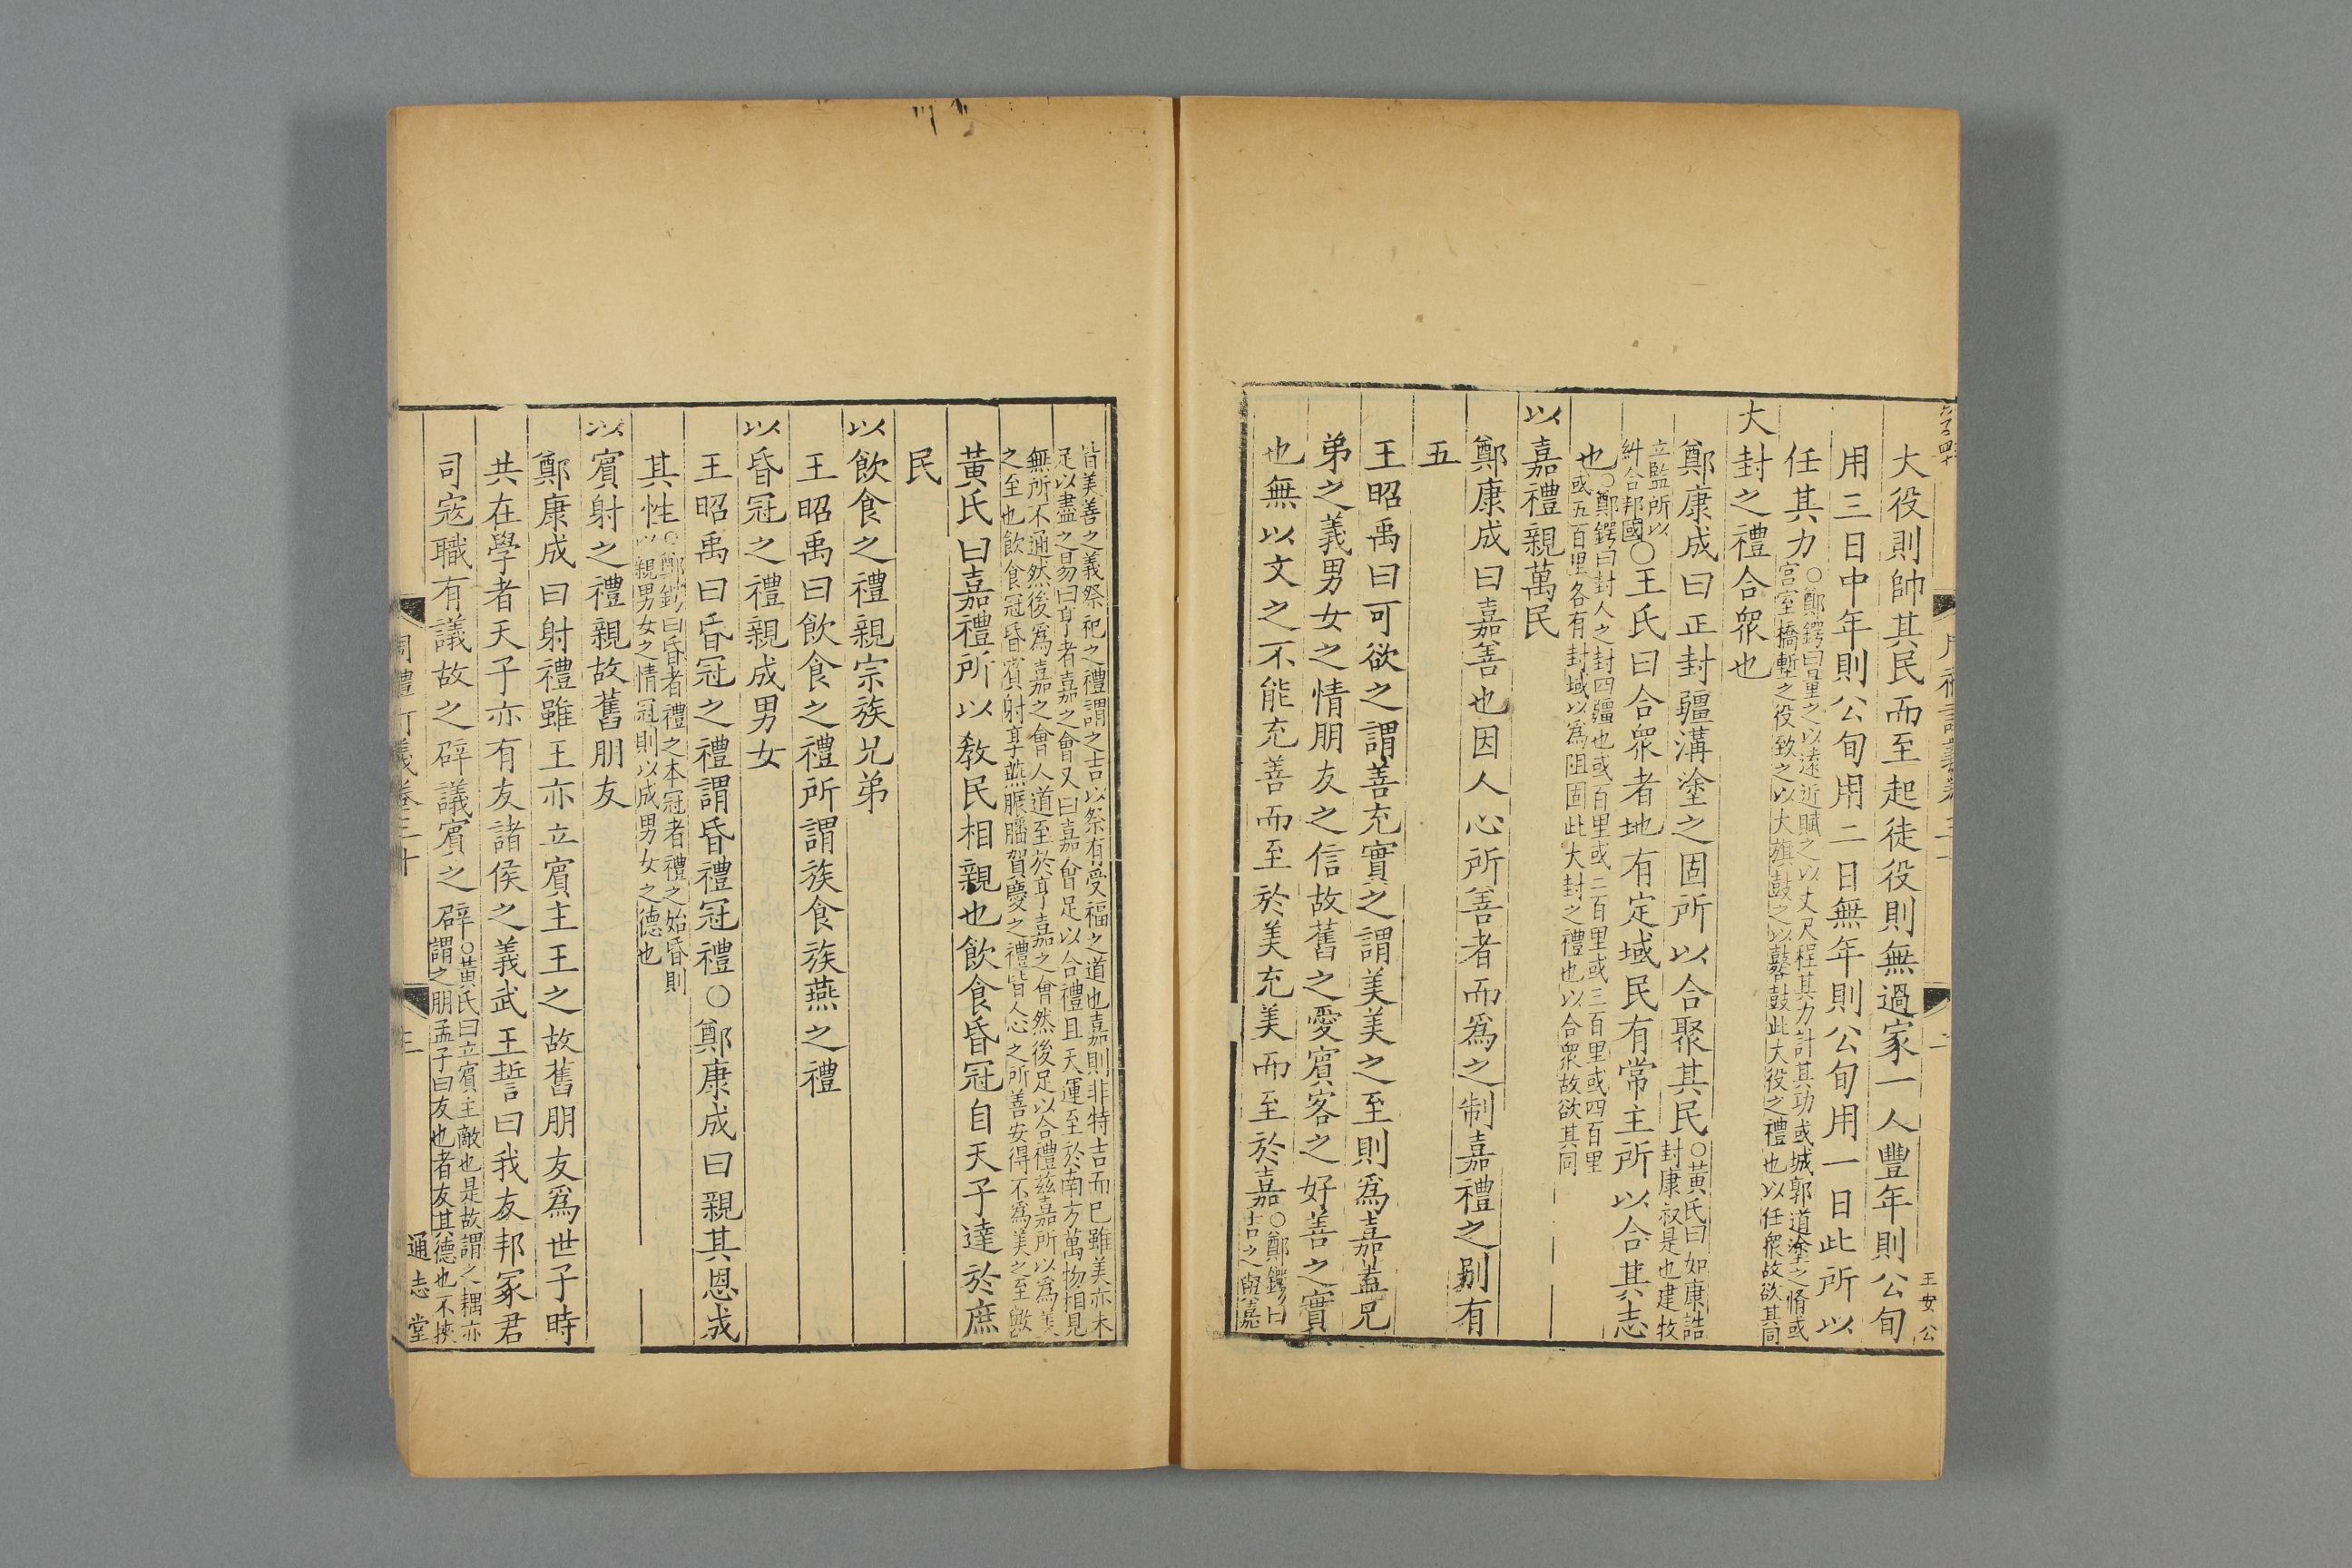 大役則帥其民而至起徒役則無過家一人豐年則公旬
用三日中年則公旬用二日無年則公旬用一日此所以
任其力○鄭鍔曰量之以遠近賦之以丈尺程其力計其功或城郭道塗之脩或
宮室橋塹之役致之以大旗鼓之以鼛鼓此大役之禮也以任衆故欲其同
大封之禮合衆也
鄭康成曰正封疆溝塗之固所以合聚其民○黃氏曰如康誥
封康叔是也建牧
立監所以
糾合邦國○王氏曰合衆者地有定域民有常主所以合其志
也○鄭鍔曰封人之封四疆也或百里或二百里或三百里或四百里
或五百里各有封域以爲阻固此大封之禮也以合衆故欲其同
以嘉禮親萬民
鄭康成曰嘉善也因人心所善者而爲之制嘉禮之别有
五
王昭禹曰可欲之謂善充實之謂美美之至則爲嘉蓋兄
弟之義男女之情朋友之信故舊之愛賓客之好善之實
也無以文之不能充善而至於美充美而至於嘉○鄭鍔曰
吉之與嘉
皆美善之義祭祀之禮謂之吉以祭有受福之道也嘉則非特吉而已雖美亦未
足以盡之易曰亨者嘉之會又曰嘉會足以合禮且天運至於南方萬物相見
無所不通然後爲嘉之會人道至於亨嘉之會然後足以合禮兹嘉所以爲美
之至也飲食冠昏賓射享燕脤膰賀慶之禮皆人心之所善安得不爲美之至歟
黃氏曰嘉禮所以敎民相親也飲食昏冠自天子達於庶
民
以飲食之禮親宗族兄弟
王昭禹曰飲食之禮所謂族食族燕之禮
以昏冠之禮親成男女
王昭禹曰昏冠之禮謂昏禮冠禮○鄭康成曰親其恩成
其性○鄭鍔曰昏者禮之本冠者禮之始昏則
以親男女之情冠則以成男女之德也
以賓射之禮親故舊朋友
鄭康成曰射禮雖王亦立賓主王之故舊朋友爲世子時
共在學者天子亦有友諸侯之義武王誓曰我友邦冢君
司寇職有議故之辟議賓之辟○黃氏曰立賓主敵也是故謂之耦亦
謂之朋孟子曰友也者友其德也不挾
周禮訂義卷三十
通志堂